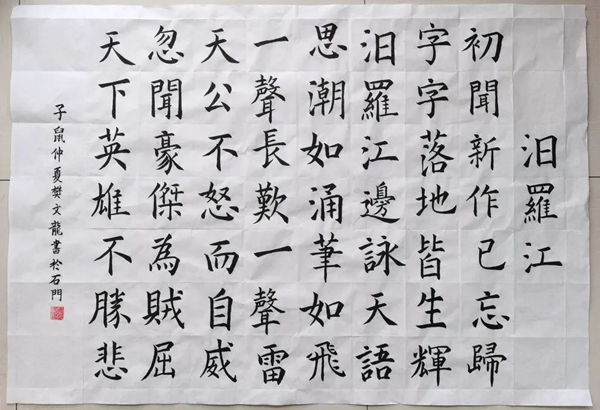 汨羅江
初聞新作已忘歸
字字落地皆生輝
汨羅江邊詠天語
思潮如涌筆如飛
一聲長歎一聲雷
天公不怒而自威
忽聞豪傑為賊屈
天下英雄不勝悲
子鼠仲夏樊文龍書於石門